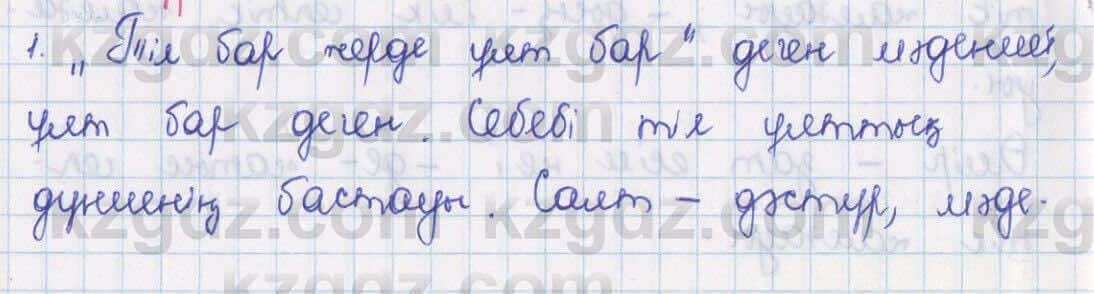 1. „Тіл бар жерде ұлт бар“ деген мәдениет,
ұлт бар деген. Себебі тіл ұлттың
дүниенің бастауы. Салт – дәстүр, мәде-